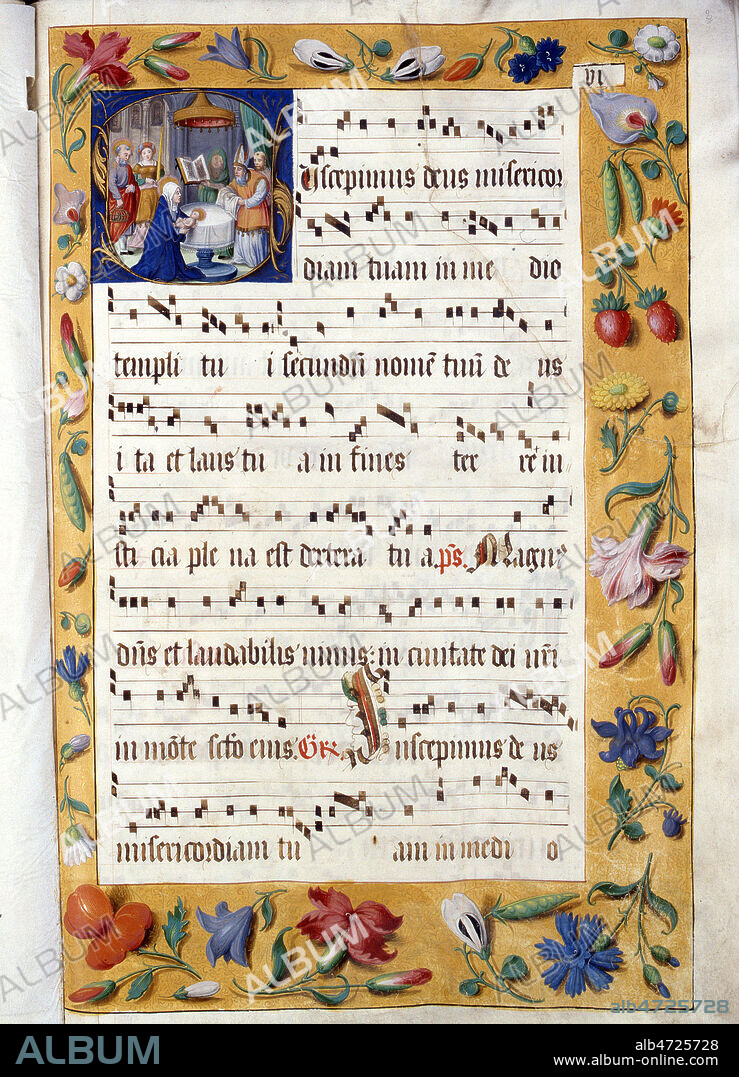 VI
Uscepimus deus misericor
diam tuam in me dio
templi tu i secundū nomē tuū de us
i ta et laus tu a in fines ter rē in
sti cia ple na est dextera tu a. ps. Magn9
dn̄s et laudabilis nimis: in ciuitate dei nr̄i
in mōte scto eius. Gr̄. Suscepimus de us
misericordiam tu am in medi o
ALBUM
alb4725728
ALBUM
alb4725728
album-online.com